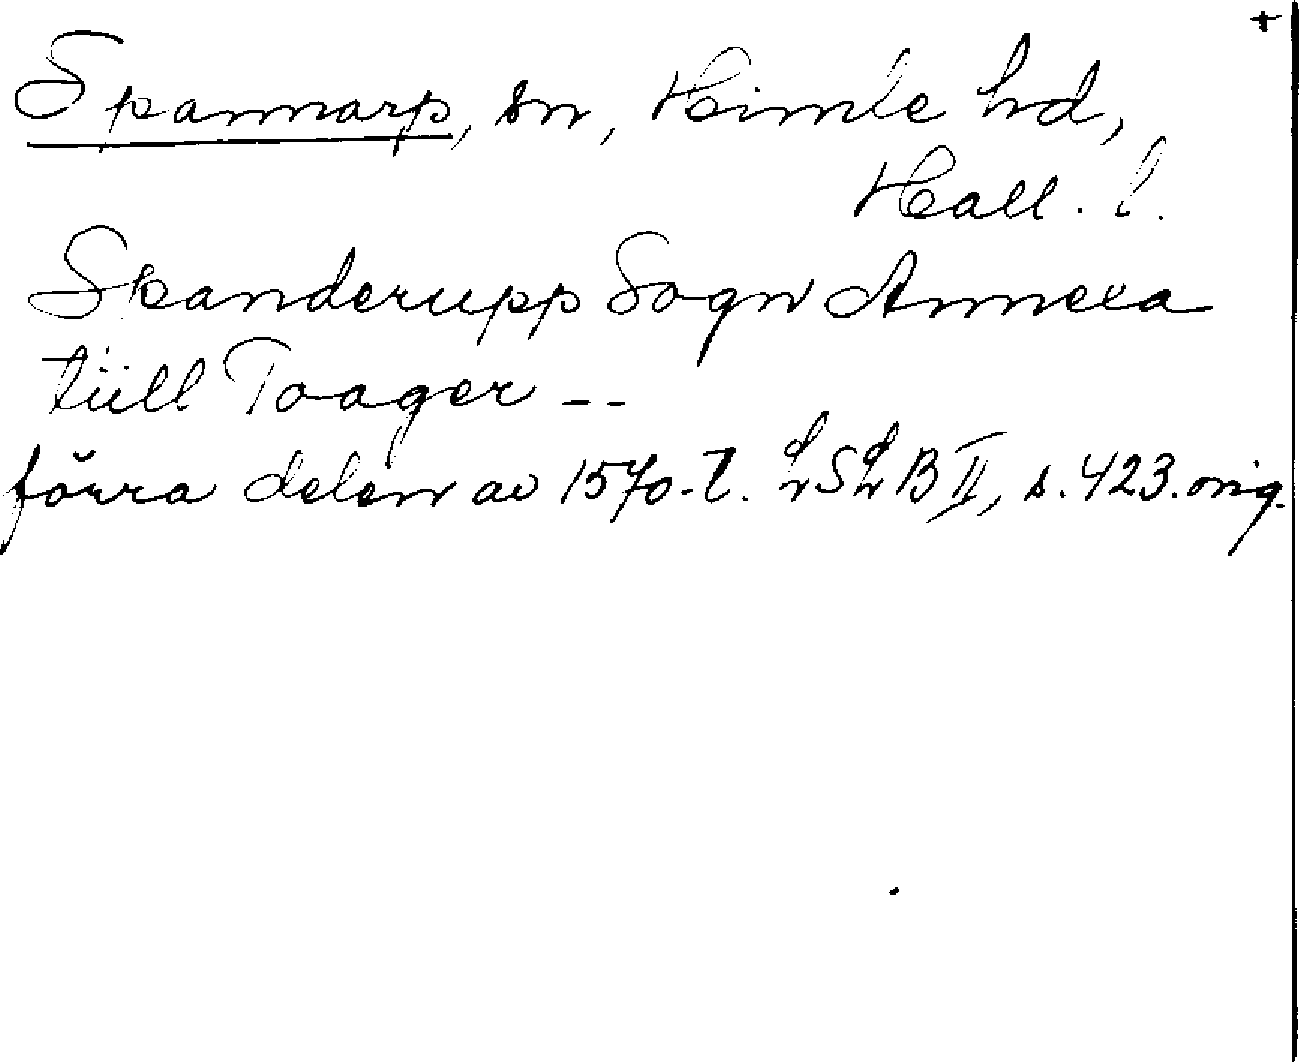 +
Spannarp, sn, Himle hd,
Hall. l.
Spanderupp Sogn Annexa
tiill Toager --
förra delen av 1570-t. LSLB II, s. 423. orig.